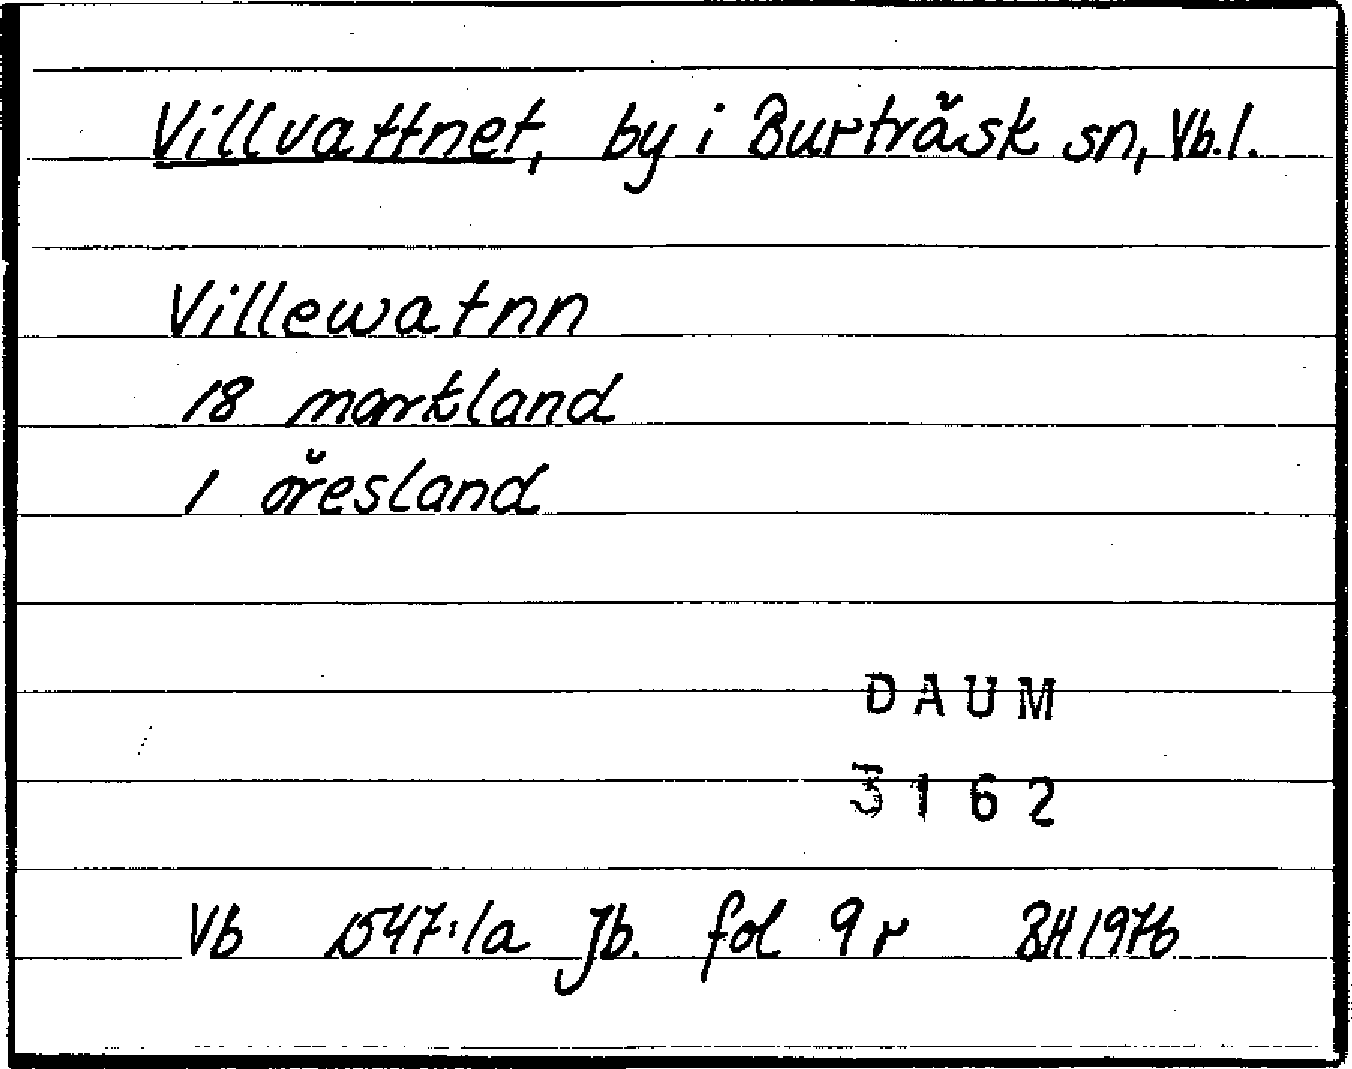 Villvattnet, by i Burträsk sn, Vb.l.
Villewatnn
18 markland
1 öresland
DAUM
3162
Vb 1547:1a Jb. fol 9r BH 1976